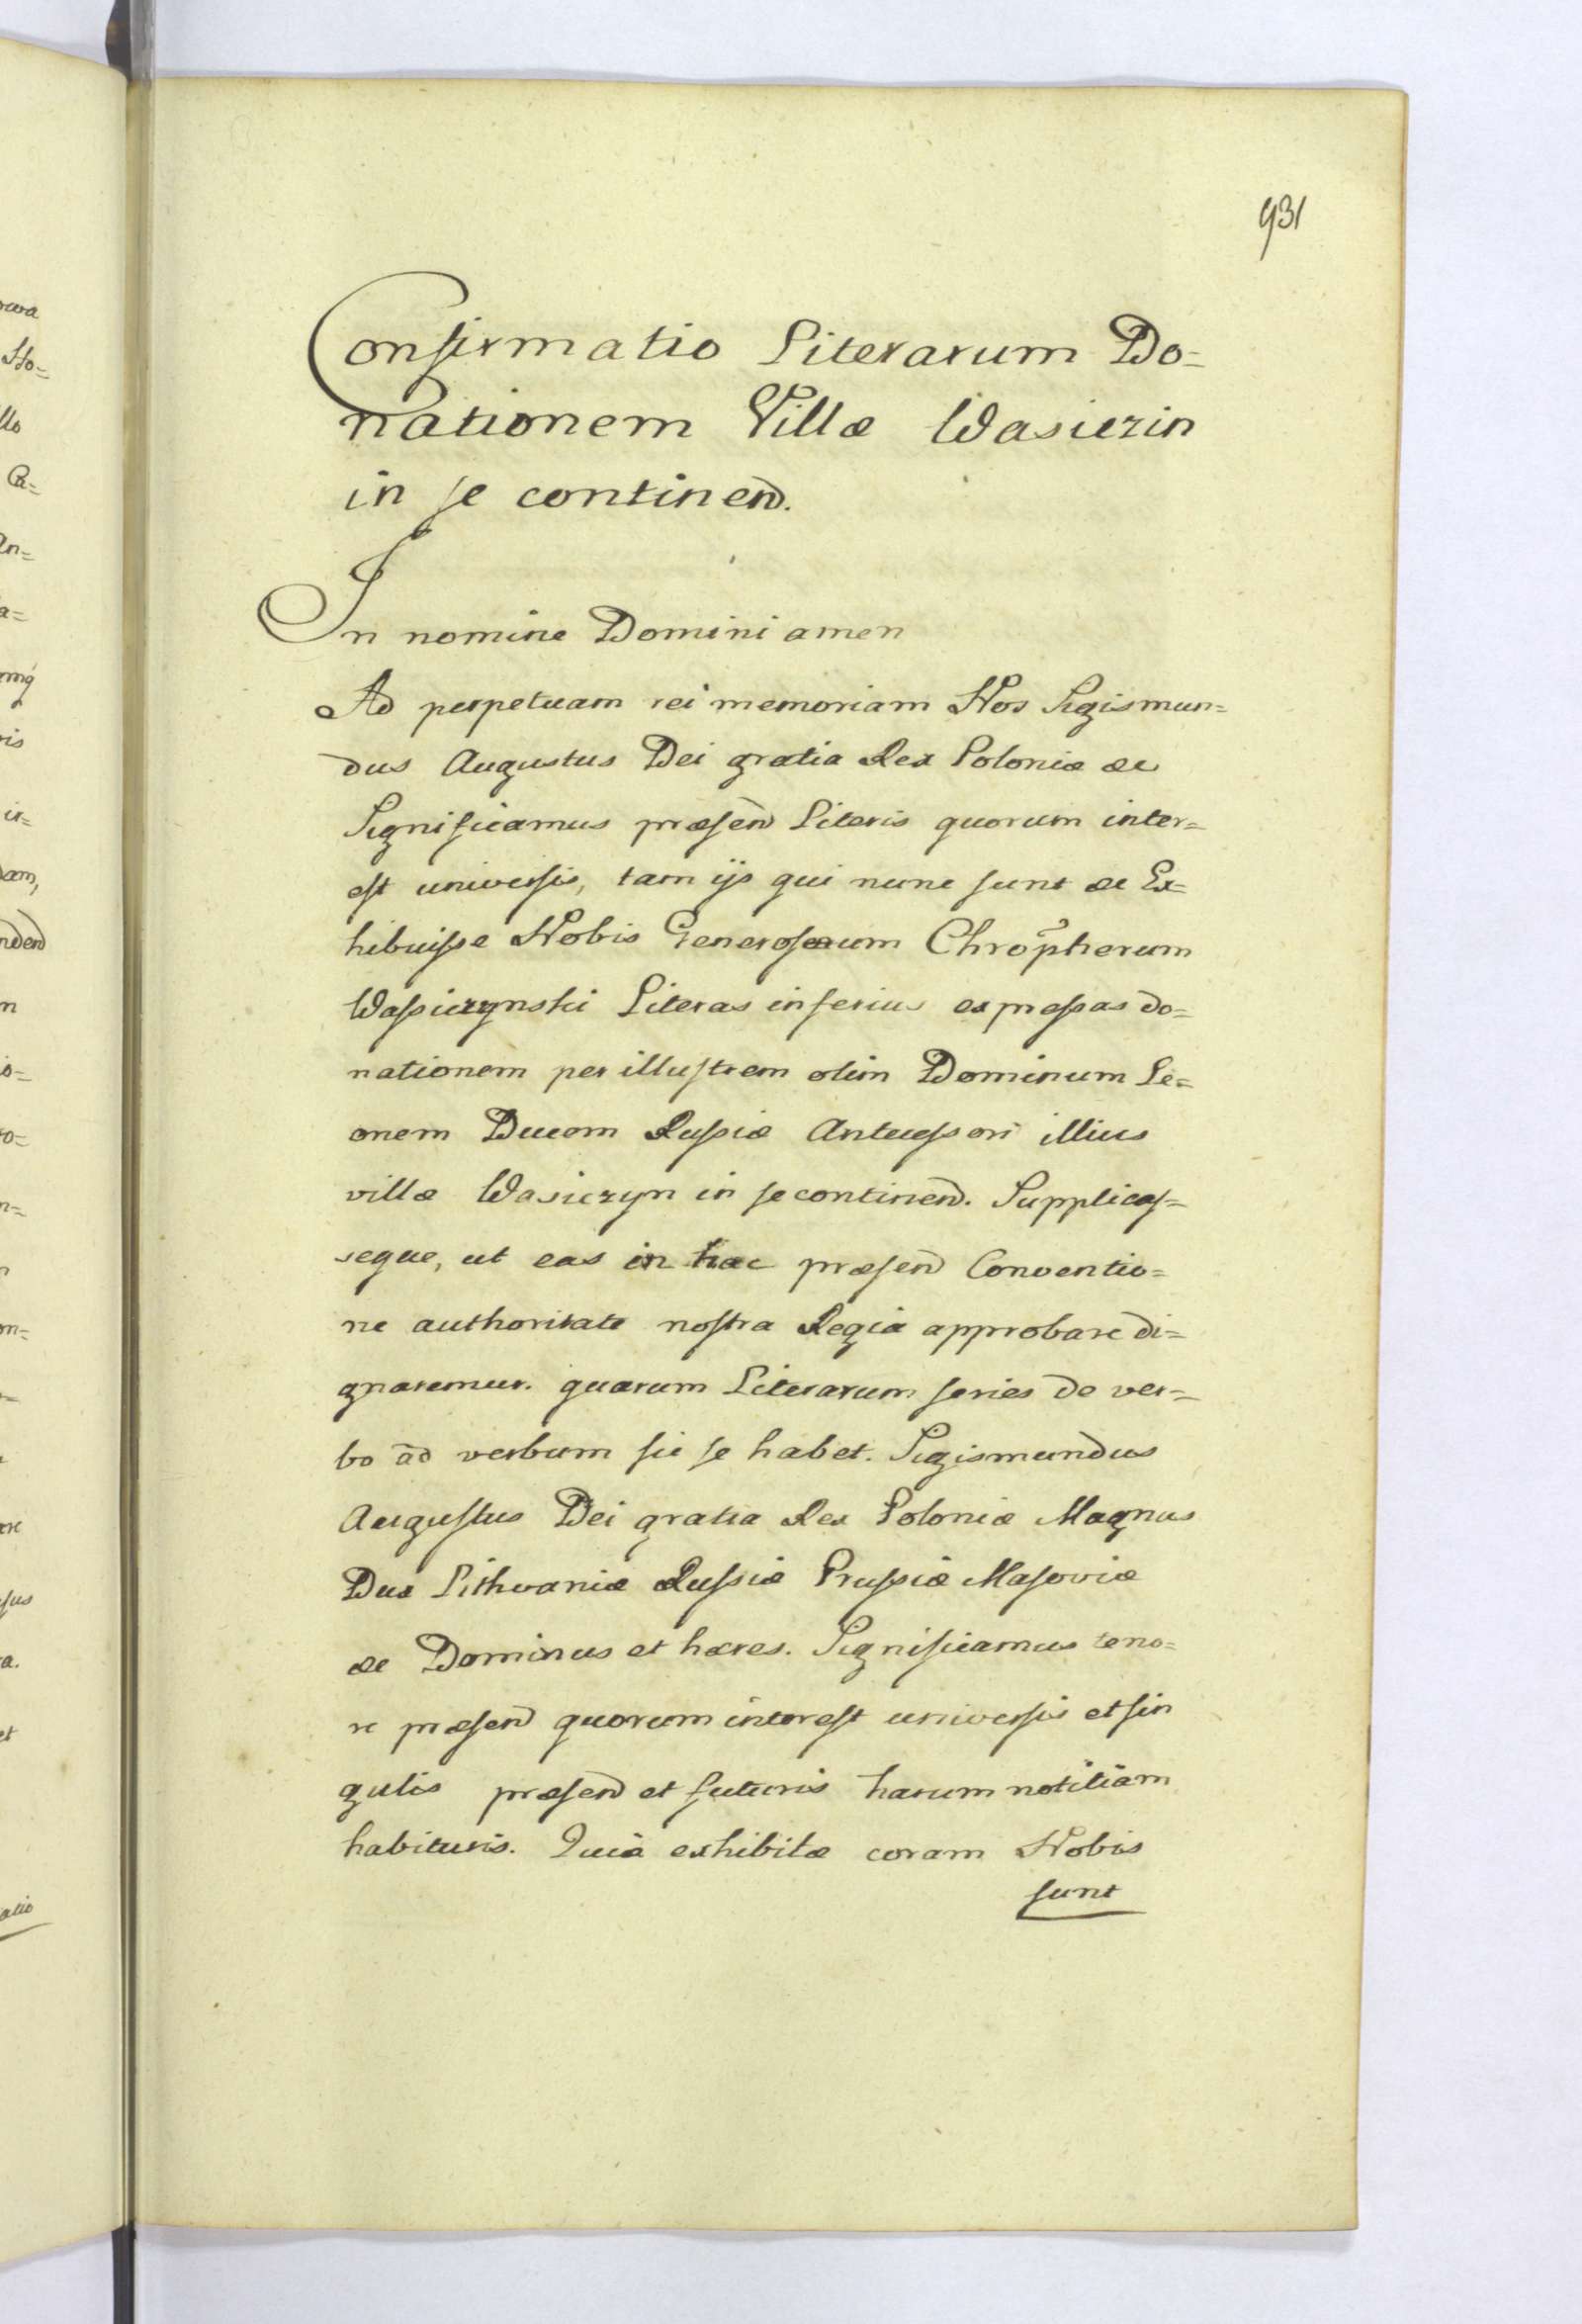 931
Confirmatio Literarum Do=
nationem Villæ Wasiczin
in se continen̄d.
In nomine Domini amen
Ad perpetuam rei memoriam Nos Sigismun=
dus Augustus Dei gratia Rex Poloniæ &c
Significamus præsen̄d Literis quorum inter=
est universis, tam ijs qui nunc sunt &c Ex=
hibuisse Nobis Generosum Chrõpherum
Wassiczynski Literas inferius expressas do=
nationem per illustrem olim Dominum Le=
onem Ducem Russiæ Antecessori illius
villæ Wasiczyn in se continen̄d. Supplicas=
seque, ut eas in hac præsen̄d Conventio=
ne authoritate nostra Regia approbare di=
gnaremur. quarum Literarum series de ver=
bo ad verbum sic se habet. Sigismundus
Augustus Dei gratia Rex Poloniæ Magnus
Dux Lithvaniæ Russiæ Prussiæ Masoviæ
&c Dominus et hæres. Significamus teno=
re præsen̄d quorum interest universis et sin
gulis præsen̄d et futuris harum notitiam
habituris. Quia exhibitæ coram Nobis
sunt